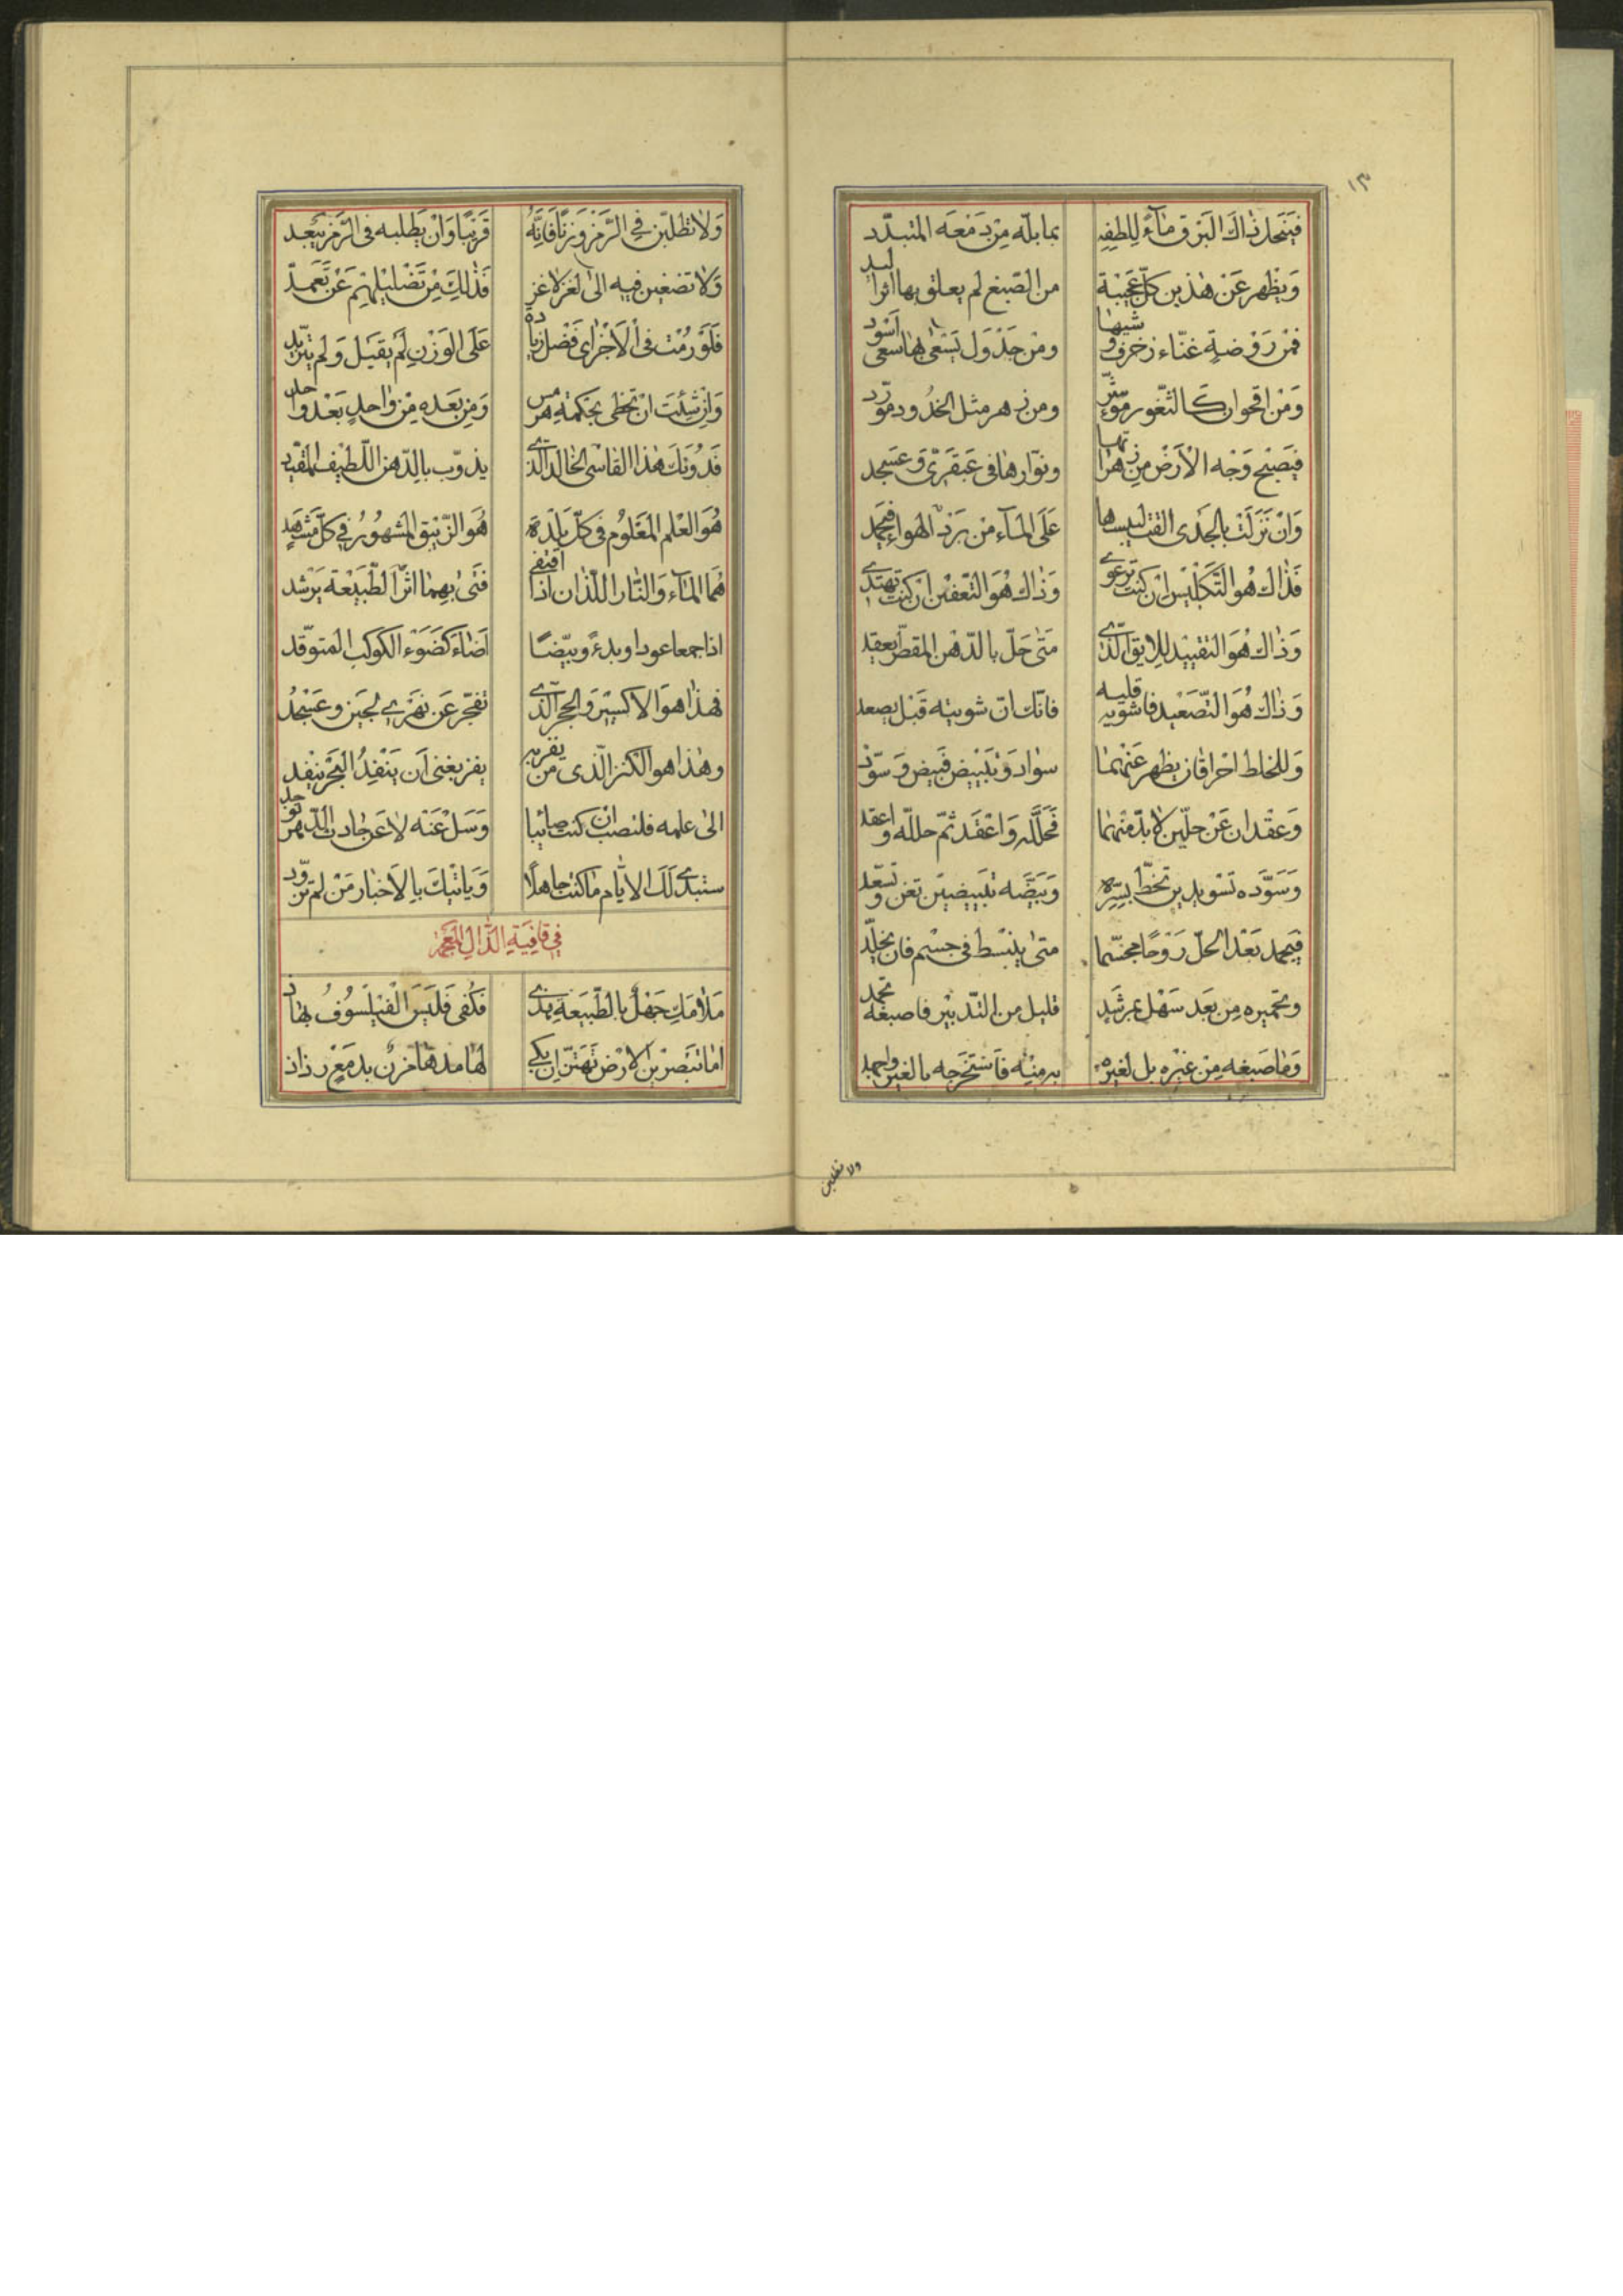 ١٣
فينحل ذاك البرق مآءً للطفه بما بلّه من دَمْعَه المتبدّد
وَيَظْهر عَنْ هٰذين كلّ عَجيْبَة من الصّبغ لم يعلق بها اثوا لبد
فمن رَوْضةٍ غنّاء زخرف وشيها ومن جَدْوَل يَسْعىٰ بها سعى اَسْود
وَمن اقحوان كالثّغور مؤشّر ومن زهر مثل الخدُود مورّد
فيَصْبح وَجْه الأَرْض من زهراتها ونوّارها فى عَبقَرىّ وَعسجد
وَانْ نَزَلَتْ بالجدَى القت لبيسها عَلَى المآء من بَرَدْ الهواء فيجمد
فَذاك هُو التَّكْليْس ان كنت ترعوى وَذاك هُوَ التّعفين ان كنت تهتدى
وَذاك هُوَ التقييْد للابق الّذى مَتٰى حَلّ بالدّهن المقطّر يعقد
وَذاك هُوَ التّصَعْيد فاشويه قليه فانّك ان شويته قبْل يصعد
وَللخلط احراقان يظهر عَنْهُما سواد وَتَبْييْض فبَيض وَسوّد
وَعقدان عَنْ حلّين لا بدّ منهما فَحَلّله وَاعْقَد ثمّ حللّه واعقد
وَسَوّده تَسْويدين تخطّ بسرّه وَبيّضه تَبْييضَيْن تغن وتسعد
فيجمد بَعْد الحلّ رَوْحًا مجسّما متىٰ ينبْسط فى جسْم فان يخلّد
وتحميره مِن بَعَد سَهْل عِرشَد قليل من التّدبيْر فاصبغه تجمد
وَمٰا صَبغه مِنْ غيره بل لغيره به منِْه فَاسْتَخْرجه بالغير واحمد
ولا تطلبن
وَلا تطلبّن فِى الرَّمْز وَزنًا فَانّه قَريبًا وَانْ يَطلبه فى الرَّمز يَبْعد
وَلا تضغين فيه الىٰ لغز لاغز فَذٰلِكَ مِنْ تَضْليْلهِمْ عَنْ تَعَمدّ
فَلَوْ رُمْتَ فى الأجْزاى فَضْل زيادة عَلَى الوَزْنِ لَمْ يقبَل وَلم يتزيّد
وَانْ شئِتَ انْ تحظى بحَكمةِ هرمس وَمِن بَعَده مِنْ وٰاحدٍ بَعْد واحد
فَدُونَكَ هٰذا القاسى الخالد الّذى يذوّب بالدّهن اللّطيف المقيّد
هُوَ العْلم المَعَلوُم فى كلّ بَلْدَة هُوَ الزّيْبق المشهوُر فى كلّ مَشْهَدٍ
هُمٰا المآء وَالنّار اللّذان اذا اَقتفى فتىٰ بهِمٰا اثر الطّبيَْعة يَرْشد
اذا جمعا عودا وبدءً وبيّضا اَضآءَ كَضَوْء الكوكب المتوقّد
فهذا هوَ الاكسيْر وَالحجر الّذى تفجّر عَن نهرى لجيَْن وعَسْجدُ
وهٰذا هو الكنز الّذى من يفز به يفز بغنى اَن يَنْفدُ البَحْر ينفد
الىٰ علمه فلنصب ان كنت صائبا وَسَل عَنْه لا عَن حٰادث الدّهر توجد
ستبدى لَكَ الأيّام مٰا كنت جاهلًا وَيَاتيْكَ بالأخبار مَنْ لم تزوّد
فى قافِيَةِ الذّالِ المعجمة
مَلٰامَك جَهْل بالطّبَيَعة يهذى فكُفى فَلَيْسَ الْفيلَسوُفُ بهاذ
امٰا تبصرين الأرْض تَهتزّ ان بكى لهٰا مدهٰا مزنٌ بدمَعْ رذاذ